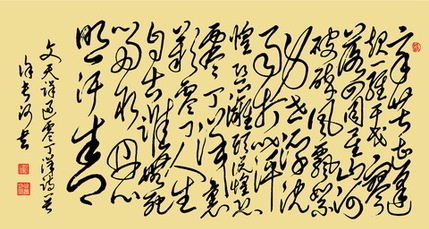 辛苦遭逢
起一經干戈寥
落四周星山河
破碎風飄絮
身世浮沈
雨打萍
惶恐灘頭說惶恐
零丁洋裏
歎零丁人生
自古誰無死
留取丹心
照汗青
文天祥過零丁洋詩